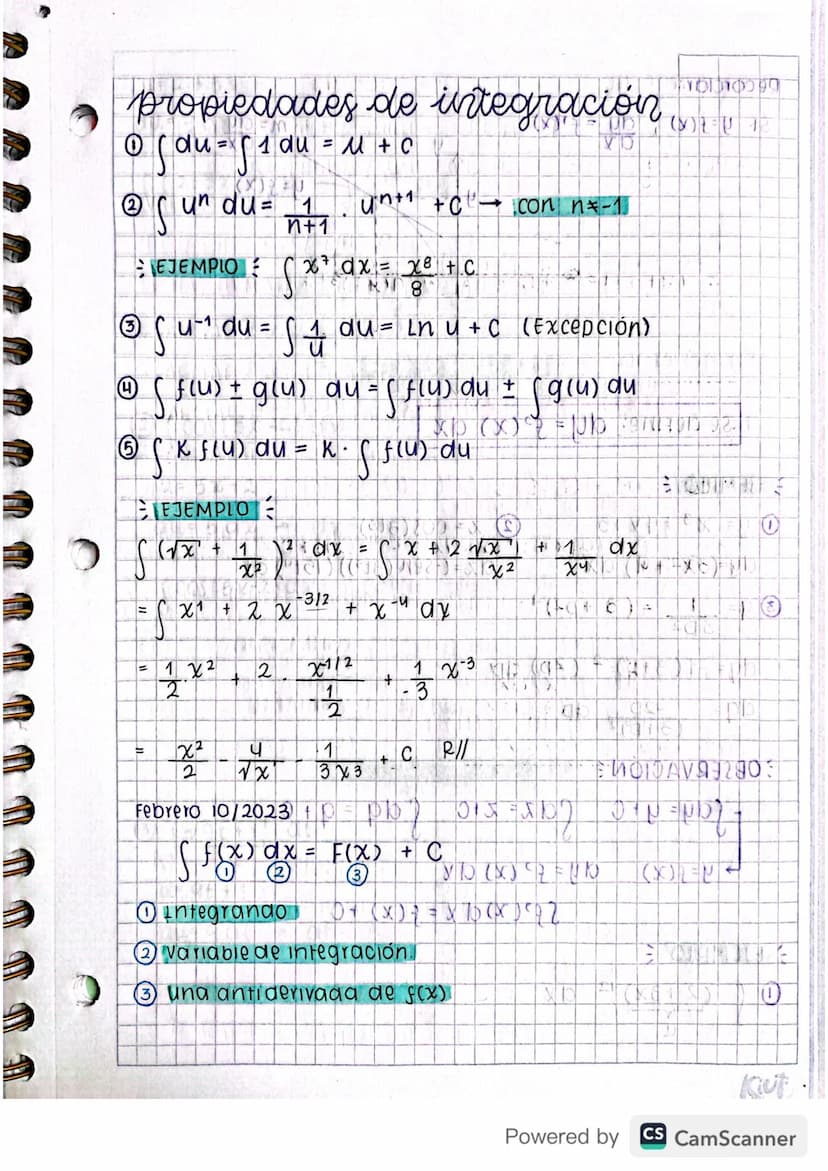 propiedades de integración
① ∫ du = ∫ 1 du = u + c
② ∫ uⁿ du = 1/n+1 · uⁿ⁺¹ + c → con n≠-1
EJEMPLO ∫ x⁷ dx = x⁸/8 + c
③ ∫ u⁻¹ du = ∫ 1/u du = Ln u + c (Excepción)
④ ∫ f(u) ± g(u) du = ∫ f(u) du ± ∫ g(u) du
⑤ ∫ K f(u) du = K · ∫ f(u) du
EJEMPLO
∫ (√x + 1/x²)² dx = ∫ x + 2 √x/x² + 1/x⁴ dx
= ∫ x¹ + 2 x^-3/2 + x⁻⁴ dx
= 1/2 · x² + 2 · x^1/2 / 1/2 + 1/-3 x⁻³
= x²/2 - 4/√x - 1/3x³ + C R//
Febrero 10/2023
∫ f(x) dx = F(x) + C
① ② ③
① Integrando
② Variable de integración.
③ una antiderivada de f(x)
Powered by CS CamScanner